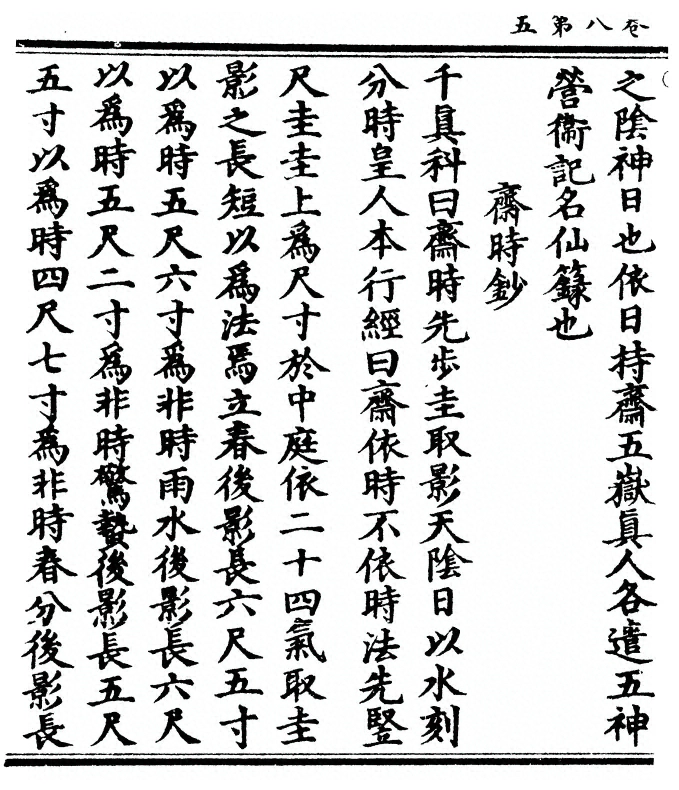 卷八第五
之陰神日也依日持齋五嶽真人各遣五神
營衛記名仙籙也
齋時鈔
千真科曰齋時先步圭取影天陰日以水刻
分時皇人本行經曰齋依時不依時法先豎
尺圭圭上為尺寸於中庭依二十四氣取圭
影之長短以為法焉立春後影長六尺五寸
以為時五尺六寸為非時雨水後影長六尺
以為時五尺二寸為非時驚蟄後影長五尺
五寸以為時四尺七寸為非時春分後影長